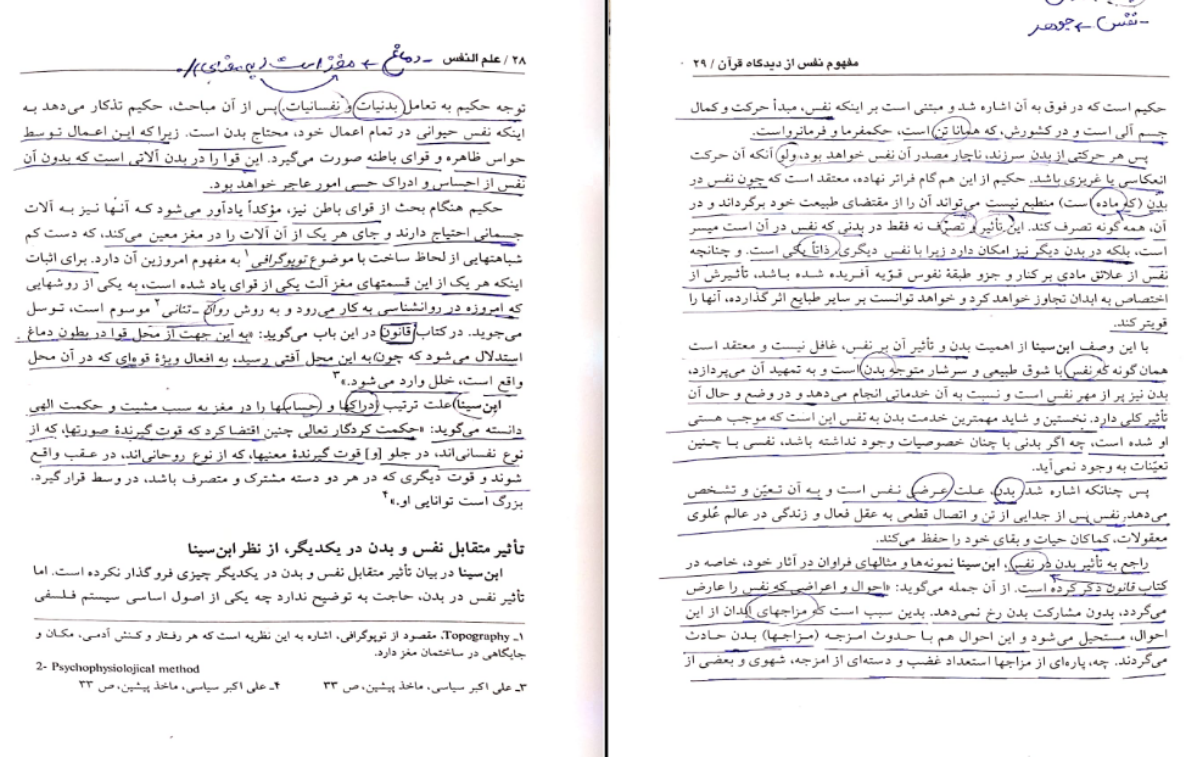 ۲۸ / علم النفس
- دماغ ← مغز است (به معنای)
توجه حکیم به تعامل بدنیات و نفسانیات. پس از آن مباحث، حکیم تذکار می‌دهد به
اینکه نفس حیوانی در تمام اعمال خود، محتاج بدن است. زیرا که این اعمال توسط
حواس ظاهره و قوای باطنه صورت می‌گیرد. این قوا را در بدن آلاتی است که بدون آن
نفس از احساس و ادراک حسی امور عاجز خواهد بود.
حکیم هنگام بحث از قوای باطن نیز، مؤکداً یادآور می‌شود که آنها نیز به آلات
جسمانی احتیاج دارند و جای هر یک از آن آلات را در مغز معین می‌کند، که دست کم
شباهتهایی از لحاظ ساخت با موضوع توپوگرافی۱ به مفهوم امروزین آن دارد. برای اثبات
اینکه هر یک از این قسمتهای مغز آلت یکی از قوای یاد شده است، به یکی از روشهایی
که امروزه در روانشناسی به کار می‌رود و به روش روان -تنانی۲ موسوم است، توسل
می‌جوید. در کتاب قانون در این باب می‌گوید: «به این جهت از محل قوا در بطون دماغ
استدلال می‌شود که چون به این محل آفتی رسید، به افعال ویژهٔ قوه‌ای که در آن محل
واقع است، خلل وارد می‌شود.»۳
ابن‌سینا علت ترتیب ادراکها و احساسها را در مغز به سبب مشیت و حکمت الهی
دانسته می‌گوید: «حکمت کردگار تعالی چنین اقتضا کرد که قوت گیرندهٔ صورتها، که از
نوع نفسانی‌اند، در جلو [و] قوت گیرندهٔ معنیها، که از نوع روحانی‌اند، در عقب واقع
شوند و قوت دیگری که در هر دو دسته مشترک و متصرف باشد، در وسط قرار گیرد.
بزرگ است توانایی او.»۴
تأثیر متقابل نفس و بدن در یکدیگر، از نظر ابن‌سینا
ابن‌سینا در بیان تأثیر متقابل نفس و بدن در یکدیگر چیزی فرو گذار نکرده است. اما
تأثیر نفس در بدن، حاجت به توضیح ندارد چه یکی از اصول اساسی سیستم فلسفی
۱ـ Topography، مقصود از توپوگرافی، اشاره به این نظریه است که هر رفتار و کنش آدمی، مکان و
جایگاهی در ساختمان مغز دارد.
2- Psychophysiolojical method
۳ـ علی اکبر سیاسی، ماخذ پیشین، ص ۳۳ ۴ـ علی اکبر سیاسی، ماخذ پیشین، ص ۳۳
- نفْس ← جوهر
مفهوم نفس از دیدگاه قرآن / ۲۹
حکیم است که در فوق به آن اشاره شد و مبتنی است بر اینکه نفس، مبدأ حرکت و کمال
جسم آلی است و در کشورش، که همانا تن است، حکمفرما و فرمانرواست.
پس هر حرکتی از بدن سرزند، ناچار مصدر آن نفس خواهد بود، ولو آنکه آن حرکت
انعکاسی یا غریزی باشد. حکیم از این هم گام فراتر نهاده، معتقد است که چون نفس در
بدن (که ماده است) منطبع نیست می‌تواند آن را از مقتضای طبیعت خود برگرداند و در
آن، همه گونه تصرف کند. این تأثیر و تصرّف نه فقط در بدنی که نفس در آن است میسر
است، بلکه در بدن دیگر نیز امکان دارد زیرا با نفس دیگری، ذاتاً یکی است. و چنانچه
نفس از علائق مادی بر کنار و جزو طبقهٔ نفوس قویّه آفریده شده باشد، تأثیرش از
اختصاص به ابدان تجاوز خواهد کرد و خواهد توانست بر سایر طبایع اثر گذارده، آنها را
قویتر کند.
با این وصف ابن‌سینا از اهمیت بدن و تأثیر آن بر نفس، غافل نیست و معتقد است
همان گونه که نفس با شوق طبیعی و سرشار متوجه بدن است و به تمهید آن می‌پردازد،
بدن نیز پر از مهر نفس است و نسبت به آن خدماتی انجام می‌دهد و در وضع و حال آن
تأثیر کلی دارد. نخستین و شاید مهمترین خدمت بدن به نفس این است که موجب هستی
او شده است، چه اگر بدنی با چنان خصوصیات وجود نداشته باشد، نفسی با چنین
تعیّنات به وجود نمی‌آید.
پس چنانکه اشاره شد، بدن، علت عرضی نفس است و به آن تعیّن و تشخص
می‌دهد. نفس پس از جدایی از تن و اتصال قطعی به عقل فعال و زندگی در عالم عُلوی
معقولات، کماکان حیات و بقای خود را حفظ می‌کند.
راجع به تأثیر بدن در نفس، ابن‌سینا نمونه‌ها و مثالهای فراوان در آثار خود، خاصه در
کتاب قانون ذکر کرده است. از آن جمله می‌گوید: «احوال و اعراضی که نفس را عارض
می‌گردد، بدون مشارکت بدن رخ نمی‌دهد. بدین سبب است که مزاجهای ابدان از این
احوال، مستحیل می‌شود و این احوال هم با حدوث امزجه (مزاجها) بدن حادث
می‌گردند. چه، پاره‌ای از مزاجها استعداد غضب و دسته‌ای از امزجه، شهوی و بعضی از